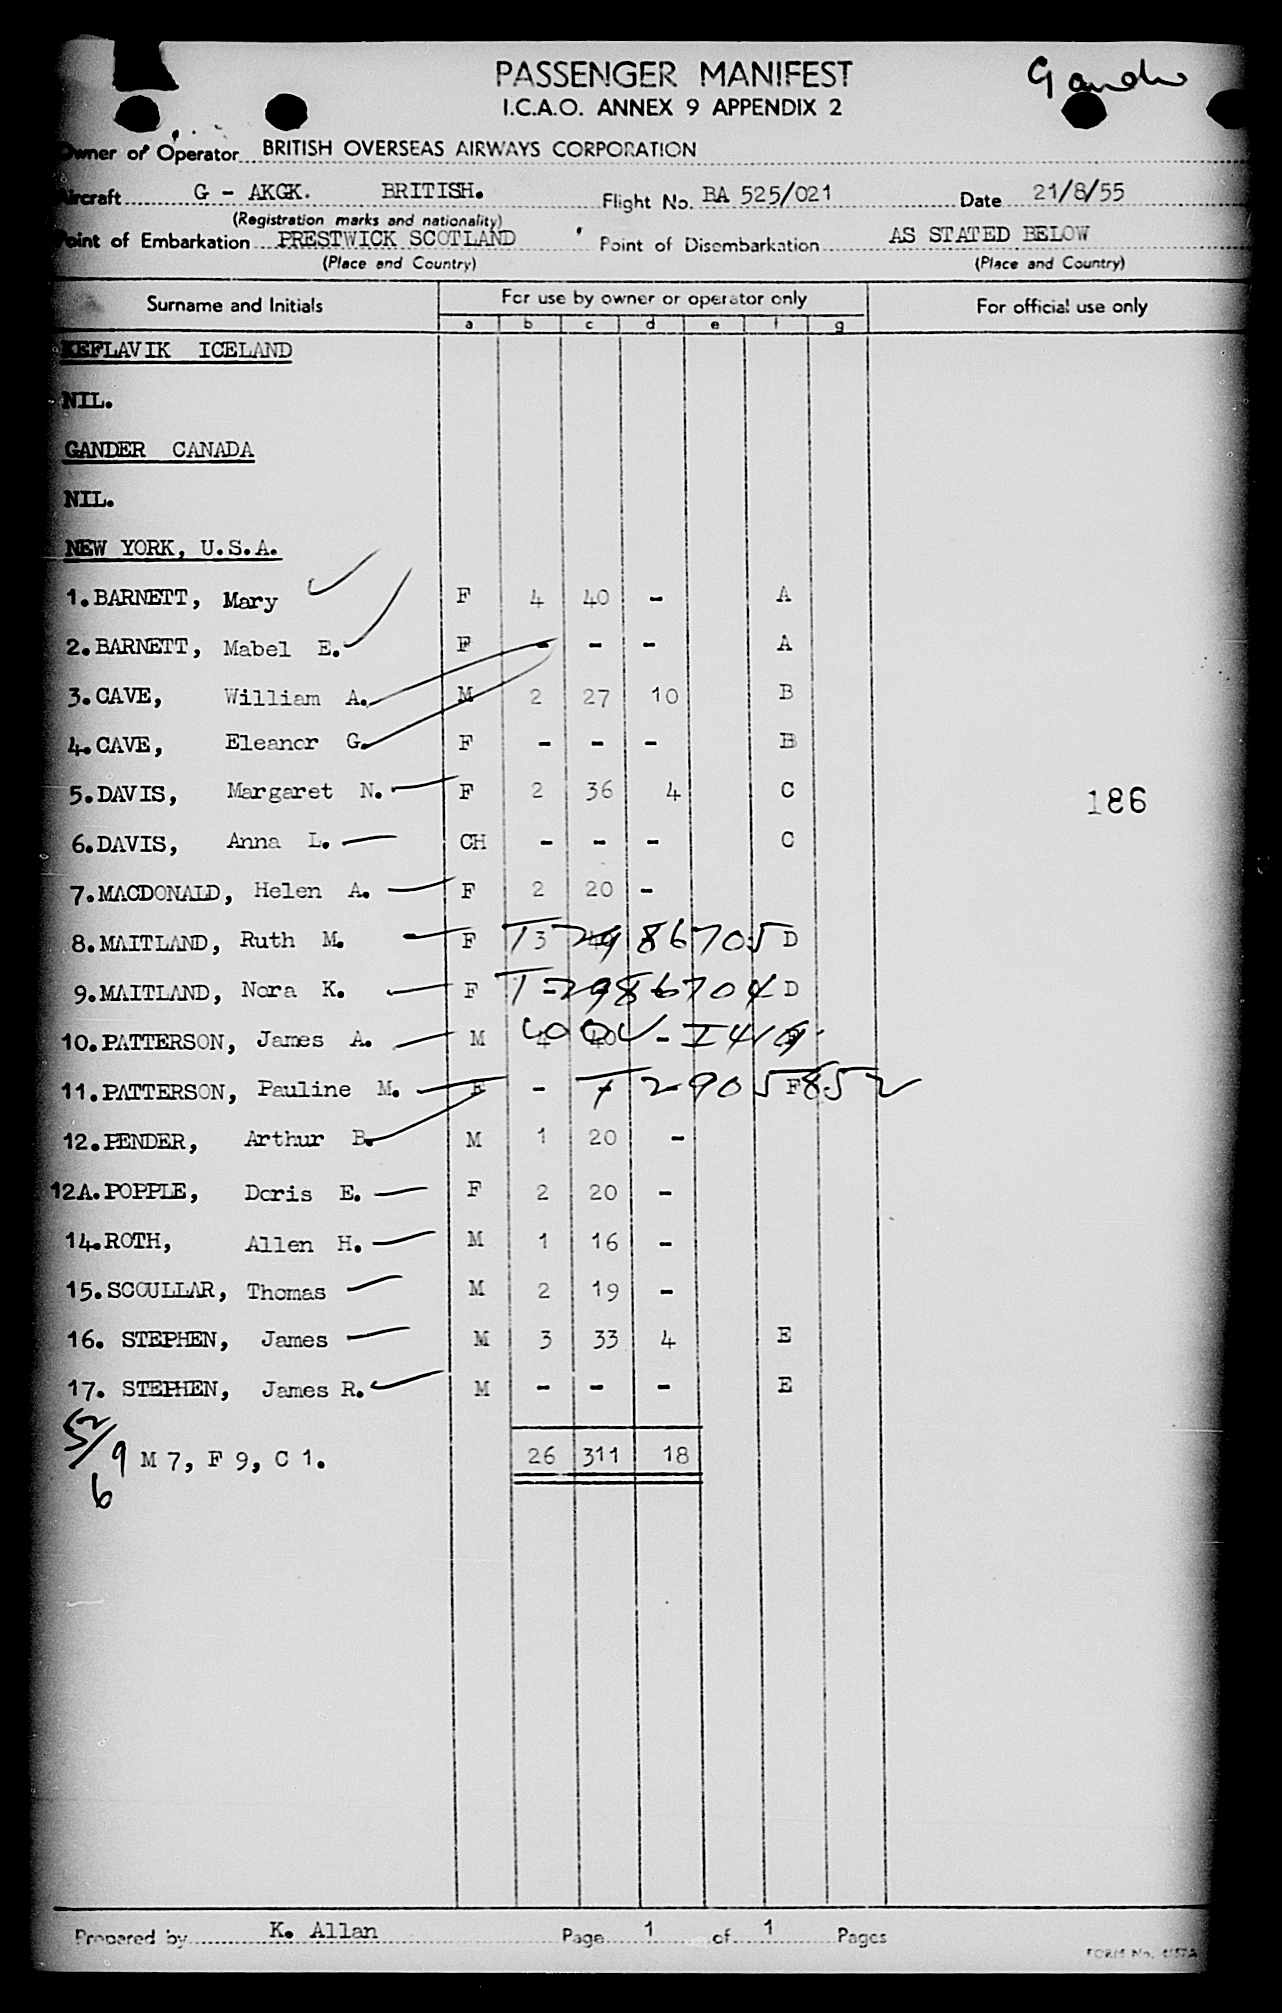 PASSENGER MANIFEST
I.C.A.O. ANNEX 9 APPENDIX 2
Gander
Owner or Operator BRITISH OVERSEAS AIRWAYS CORPORATION
Aircraft G - AKGK. BRITISH. Flight No. BA 525/021 Date 21/8/55
(Registration marks and nationality)
Point of Embarkation PRESTWICK SCOTLAND Point of Disembarkation AS STATED BELOW
(Place and Country) (Place and Country)
Surname and Initials For use by owner or operator only For official use only
a b c d e f g
KEFLAVIK ICELAND
NIL.
GANDER CANADA
NIL.
NEW YORK, U.S.A.
1. BARNETT, Mary F 4 40 - A
2. BARNETT, Mabel E. F - - - A
3. CAVE, William A. M 2 27 10 B
4. CAVE, Eleanor G. F - - - B
5. DAVIS, Margaret N. F 2 36 4 C
186
6. DAVIS, Anna L. CH - - - C
7. MACDONALD, Helen A. F 2 20 -
8. MAITLAND, Ruth M. F 3 D
T2986705
9. MAITLAND, Nora K. F - D
T2986704
10. PATTERSON, James A. M 4 40 -
11. PATTERSON, Pauline M. F - F
T2905852
12. PENDER, Arthur B. M 1 20 -
12A. POPPLE, Doris E. F 2 20 -
14. ROTH, Allen H. M 1 16 -
15. SCOULLAR, Thomas M 2 19 -
16. STEPHEN, James M 3 33 4 E
17. STEPHEN, James R. M - - - E
52/9
6
M 7, F 9, C 1. 26 311 18
Prepared by K. Allan Page 1 of 1 Pages
FORM No.